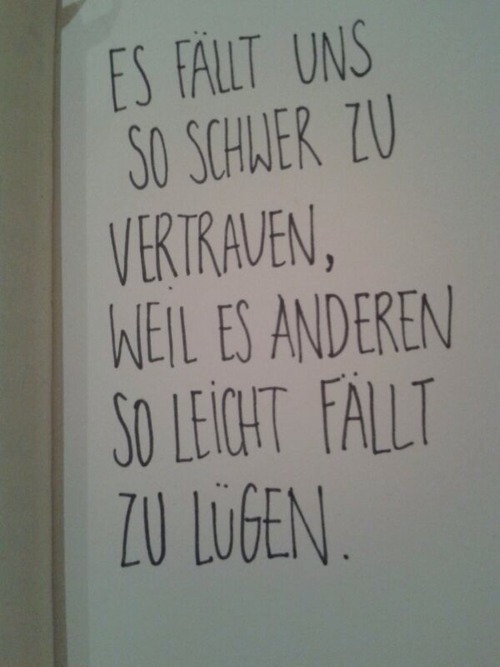 ES FÄLLT UNS
SO SCHWER ZU
VERTRAUEN,
WEIL ES ANDEREN
SO LEICHT FÄLLT
ZU LÜGEN.